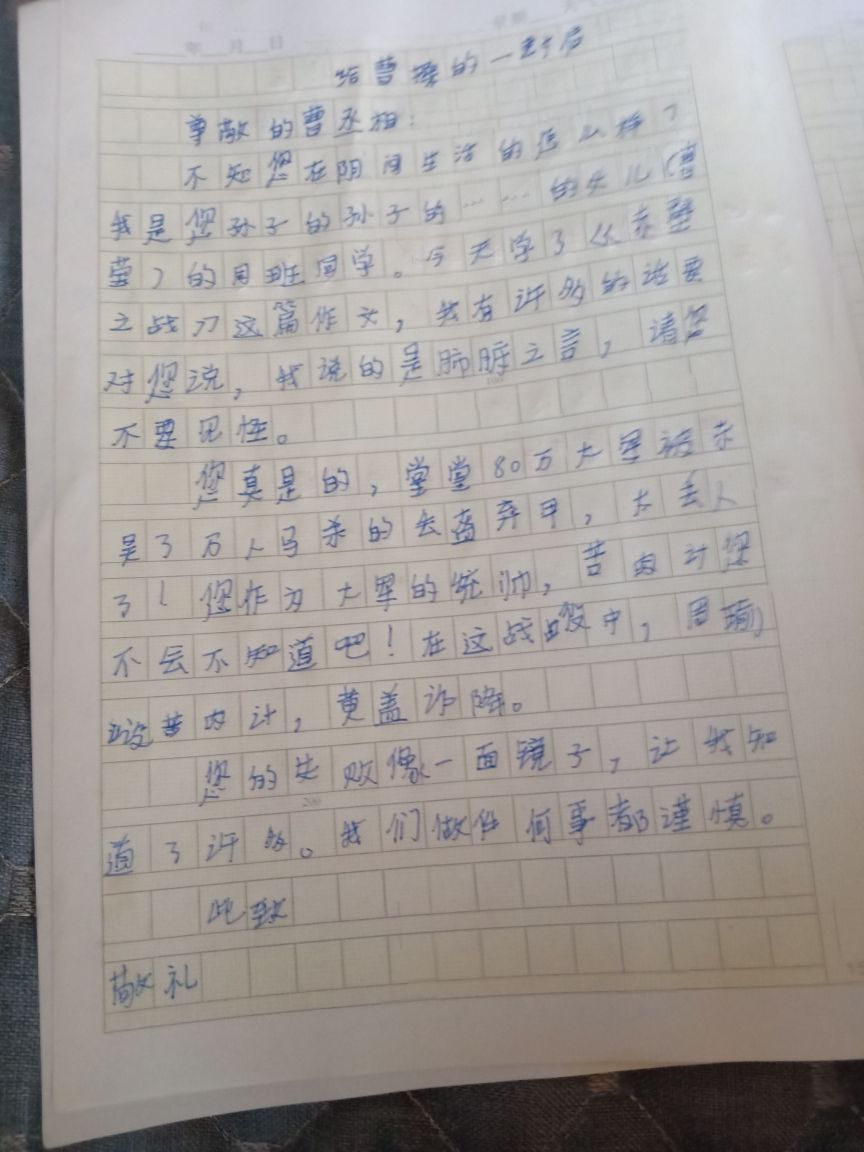 年 月 日 星期 天气
给曹操的一封信
尊敬的曹丞相:
不知您在阴间生活的怎么样?
我是您孙子的孙子的……的女儿(曹
莹)的同班同学。今天学了《赤壁
之战》这篇作文,我有许多的话要
对您说,我说的是肺脏之言,请您
不要见怪。
您真是的,堂堂80万大军被东
吴3万人马杀的丢盔弃甲,太丢人
了!您作为大军的统帅,苦肉计您
不会不知道吧!在这战役中,周瑜
设苦肉计,黄盖诈降。
您的失败像一面镜子,让我知
200
道了许多。我们做任何事都谨慎。
此致
敬礼